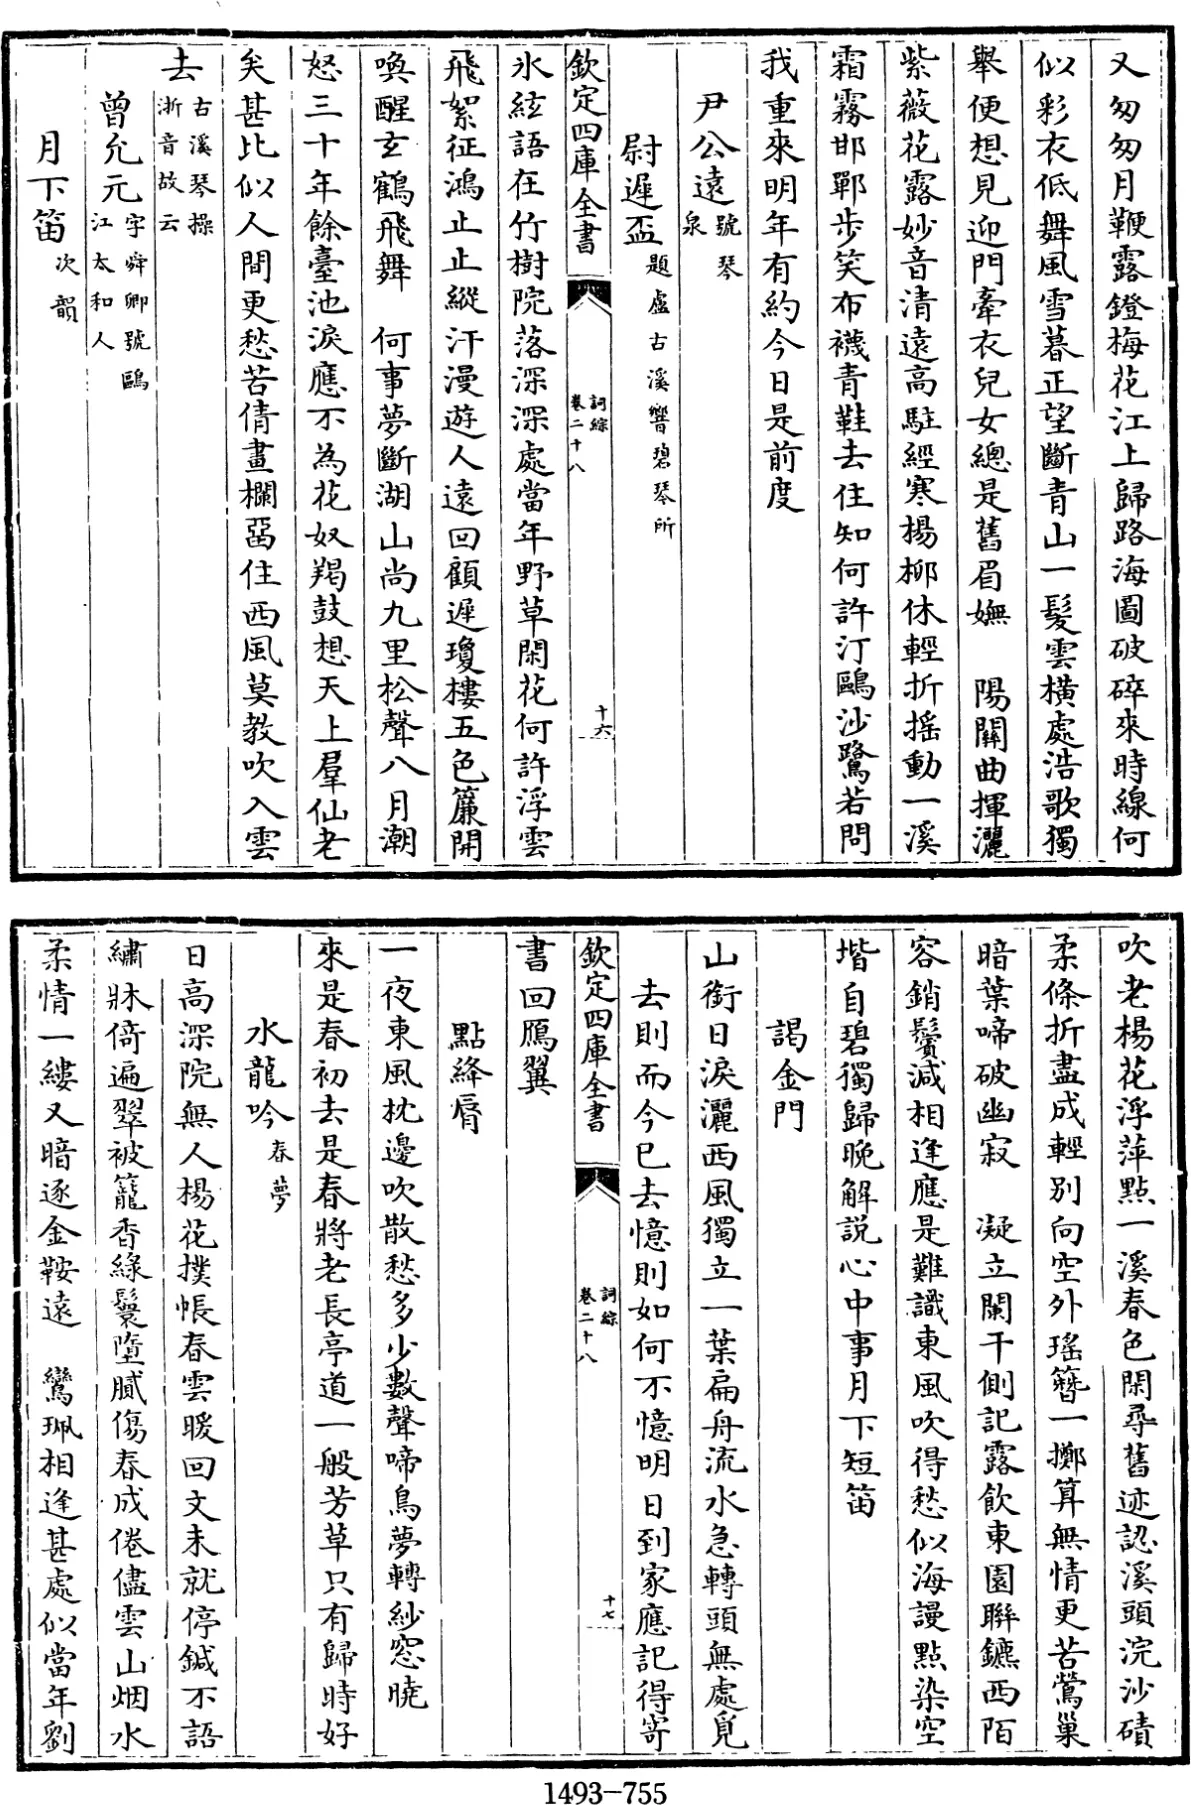 又匆匆月鞭露鐙梅花江上歸路海圖破碎來時線何
似彩衣低舞風雪暮正望斷青山一髪雲横處浩歌獨
舉便想見迎門牽衣兒女總是舊眉嫵　陽關曲揮灑
紫薇花露妙音清遠高駐經寒楊柳休輕折揺動一溪
霜霧邯鄲步笑布襪青鞋去住知何許汀鷗沙鷺若問
我重來明年有約今日是前度
尹公遠號琴泉
尉遲盃題盧古溪響碧琴所
欽定四庫全書
詞綜
卷二十八
十六
氷絃語在竹樹院落深深處當年野草閑花何許浮雲
飛絮征鴻止止縱汗漫遊人遠回顧遲瓊樓五色簾開
喚醒玄鶴飛舞　何事夢斷湖山尚九里松聲八月潮
怒三十年餘臺池淚應不為花奴羯鼓想天上羣仙老
矣甚比似人間更愁苦倩畫欄遏住西風莫教吹入雲
去古溪琴操浙音故云
曾允元字舜卿號鷗江太和人
月下笛次韻
吹老楊花浮萍點點一溪春色閑尋舊迹認溪頭浣沙磧
柔條折盡成輕别向空外瑤簪一擲算無情更苦鶯巢
暗葉啼破幽寂　凝立闌干側記露飲東園聯鑣西陌
容銷鬢減相逢應是難識東風吹得愁似海謾點染空
堦自碧獨歸晩解說心中事月下短笛
謁金門
山銜日淚灑西風獨立一葉扁舟流水急轉頭無處覓
去則而今已去憶則如何不憶明日到家應記得寄
欽定四庫全書
詞綜
卷二十八
十七
書回鴈翼
點絳脣
一夜東風枕邊吹散愁多少數聲啼鳥夢轉紗窓曉
來是春初去是春將老長亭道一般芳草只有歸時好
水龍吟春夢
日高深院無人楊花撲帳春雲暖回文未就停鍼不語
繡牀倚遍翠被籠香綠鬟墮膩傷春成倦儘雲山烟水
柔情一縷又暗逐金鞍遠　鸞珮相逢甚處似當年劉
1493-755